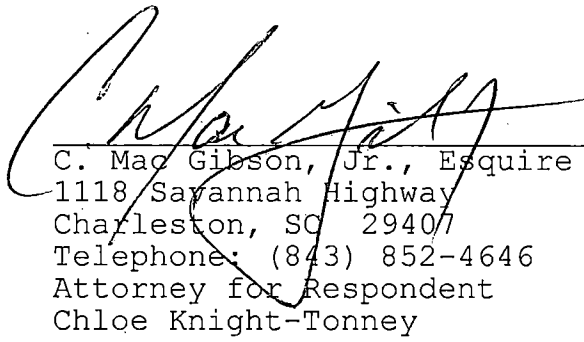 C. Mac Gibson, Jr., Esquire
1118 Savannah Highway
Charleston, SC 29407
Telephone: (843) 852-4646
Attorney for Respondent
Chloe Knight-Tonney